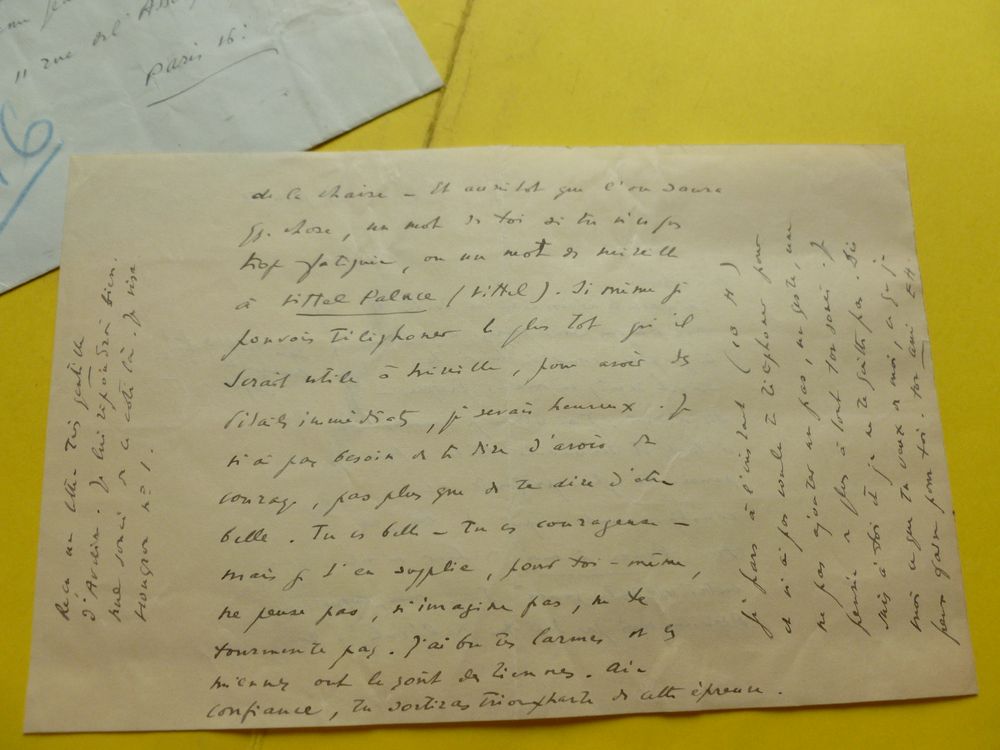 11 rue de l'Ass
Paris 16:
16
de la chaise - Et aussitôt que l'on saura
qq. chose, un mot de toi si tu n'es pas
trop fatiguée, ou un mot de Mireille
à Vittel Palace (Vittel). Si même je
pouvais téléphoner le plus tôt qu'il
serait utile à Mireille, pour avoir des
détails immédiats, je serais heureux. Je
n'ai pas besoin de te dire d'avoir du
courage, pas plus que de te dire d'être
belle. Tu es belle - Tu es courageuse -
mais je t'en supplie, pour toi-même,
ne pense pas, n'imagine pas, ne te
tourmente pas. J'ai bu tes larmes et les
miennes ont le goût des tiennes. Aie
confiance, tu sortiras triomphante de cette épreuve.
je pars à l'instant (10 H)
et n'ai pas voulu te téléphoner pour
ne pas ajouter un pas, un geste, une
pensée de plus à tout ton souci. Je
suis à toi et je ne te quitte pas. Dis
moi ce que tu veux de moi, ce que je
peux faire pour toi. ton ami EH.
Reçu une lettre très gentille
d'Arden. Je lui répondrai bien.
nul souci de ce côté là. Je